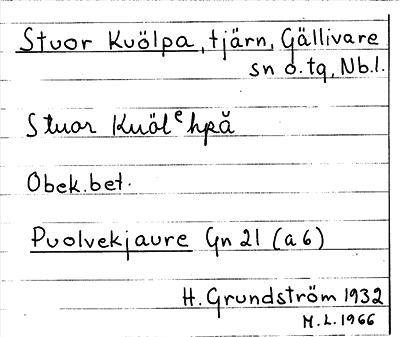 Stuor Kuölpa, tjärn, Gällivare
sn o. tg, Nb.l.
Stuor Kuölᵉhpă
Obek. bet.
Puolvekjaure Gn 21 (a6)
H. Grundström 1932
M.L. 1966